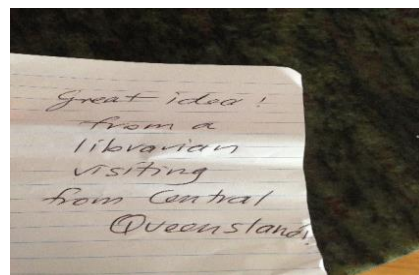 Great idea!
from a
librarian
visiting
from Central
Queensland!